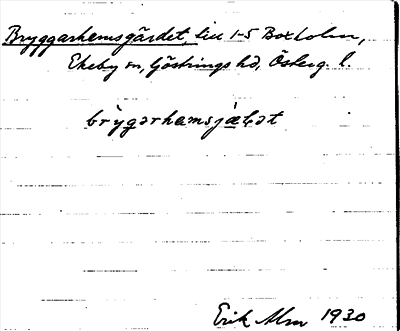 Bryggarhemsgärdet, till 1-5 Boxholm,
Ekeby sn, Göstrings hd, Österg. l.
bry̌gərhemsjæḷət
Erik Alm 1930